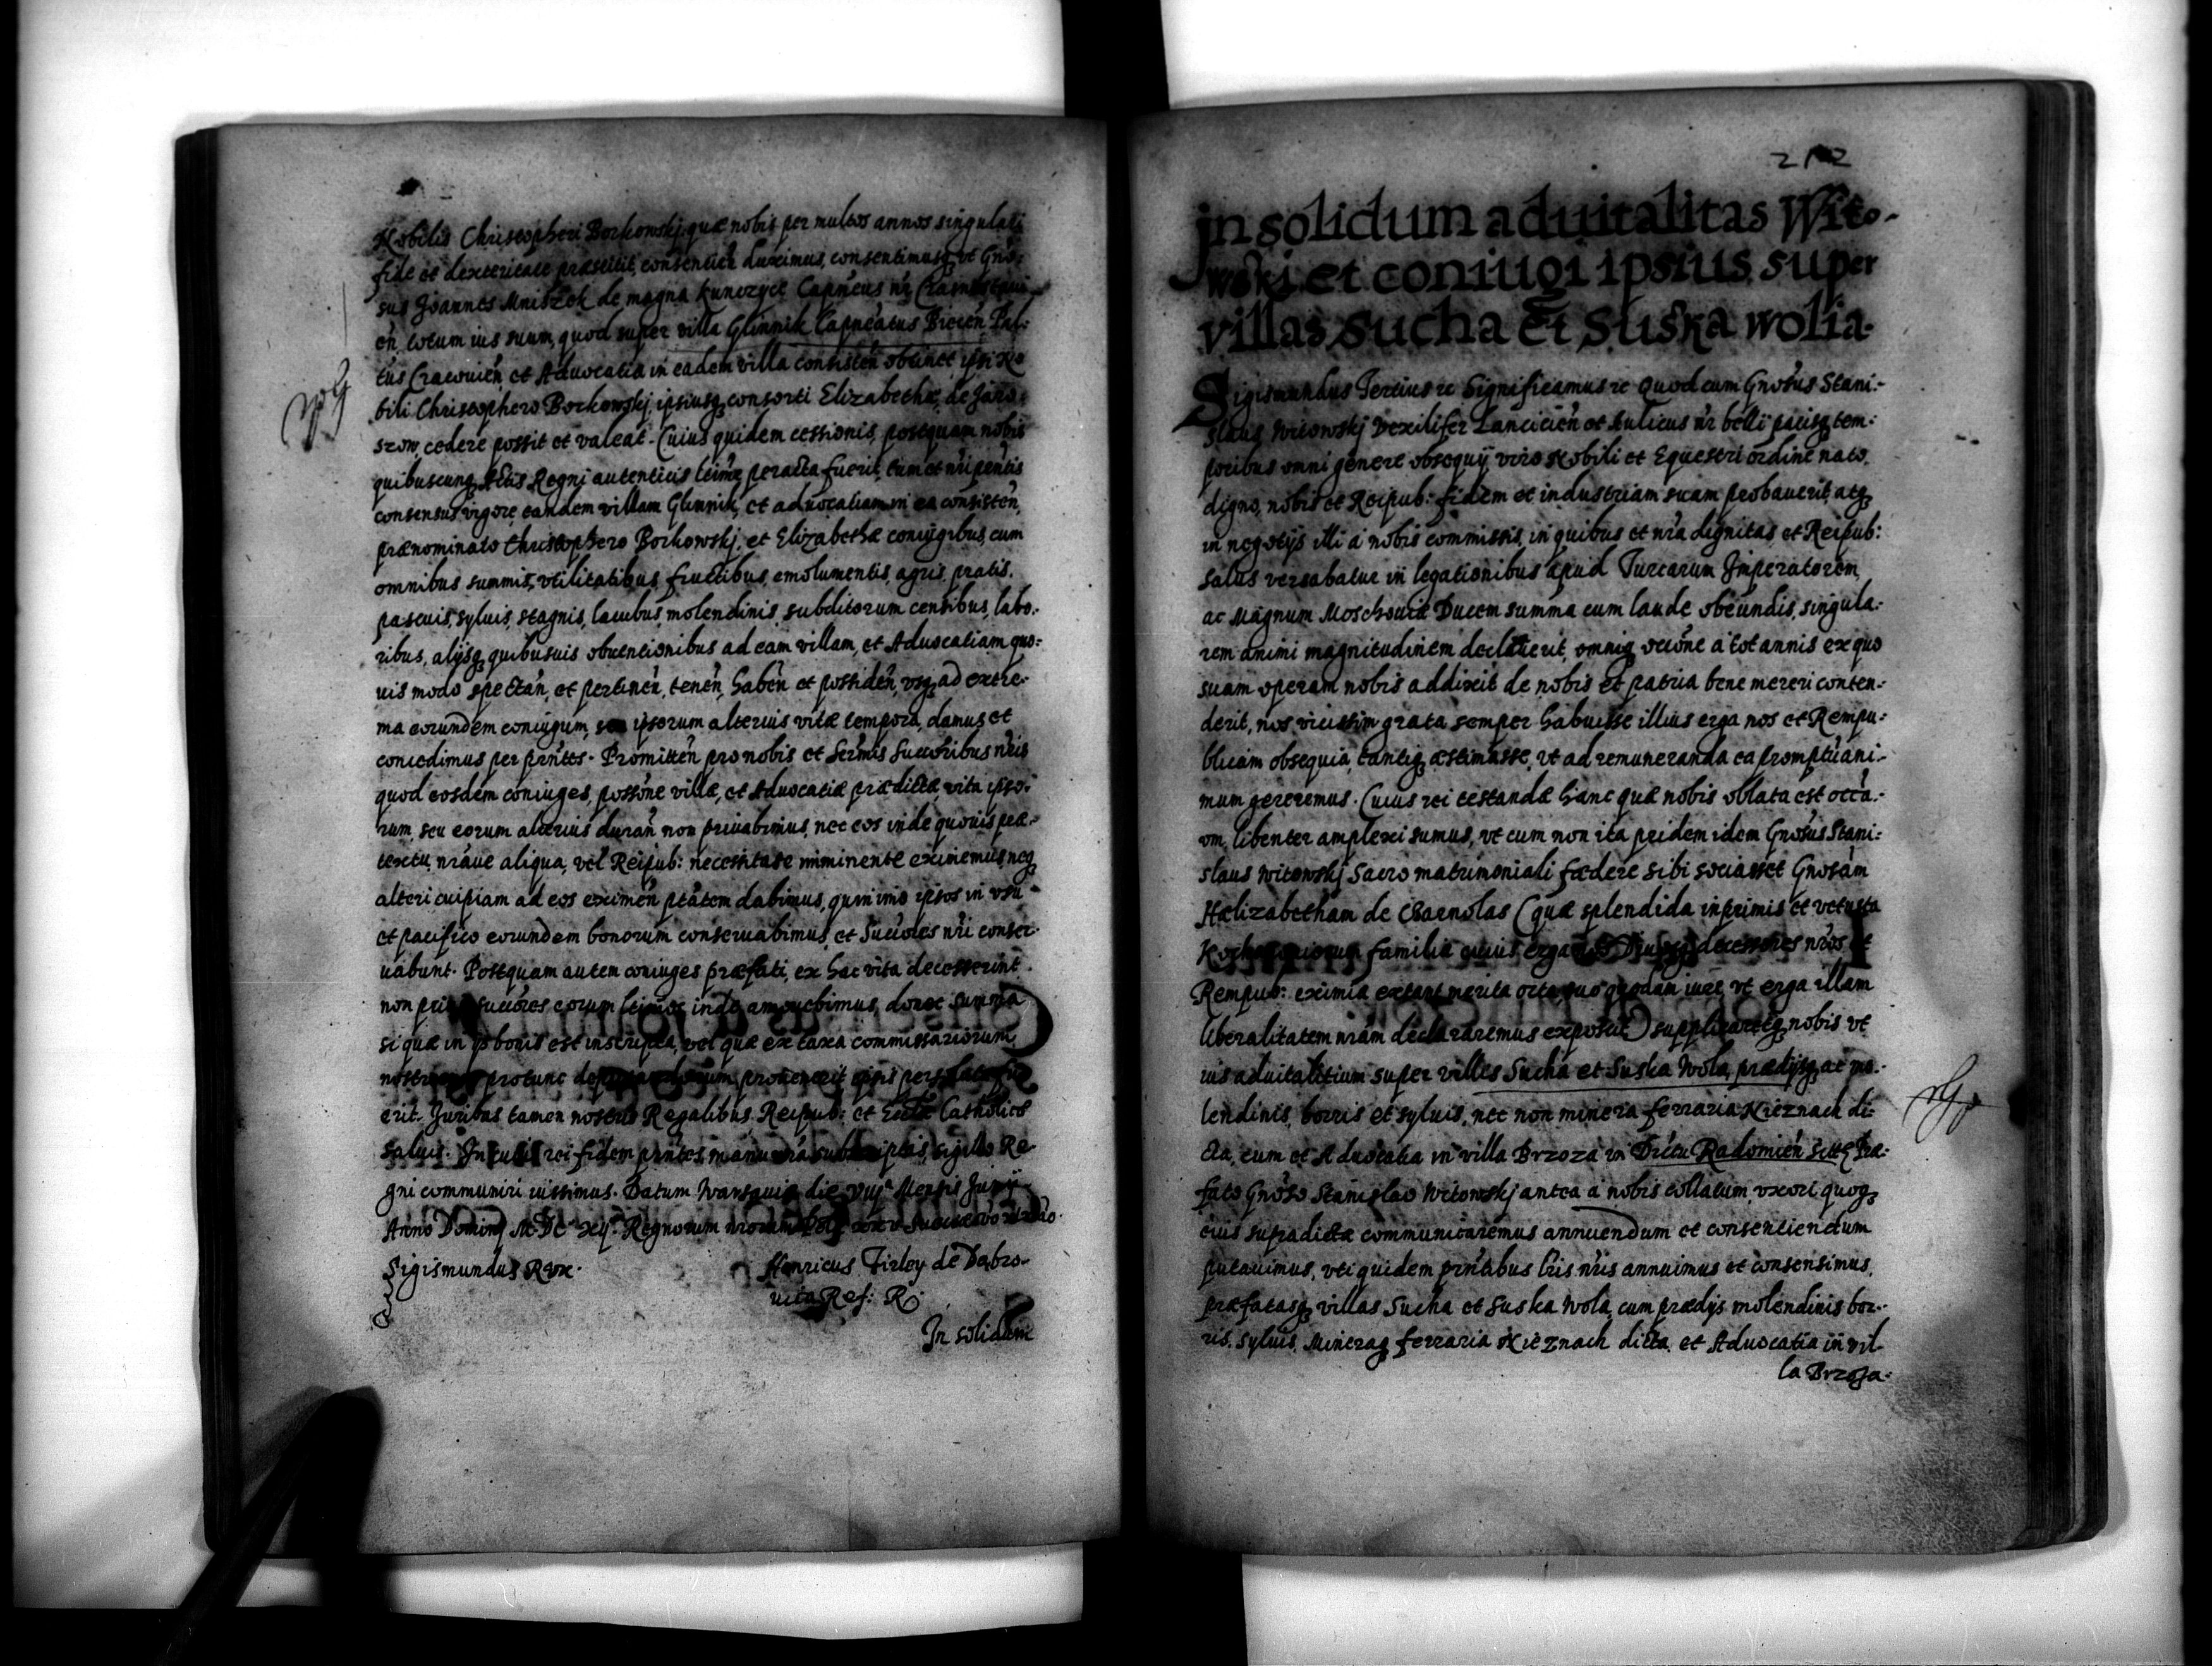 Nobilis Christopheri Borkowskj, quæ nobis per multos annos singulari
fide et dexteritate præstitit, consentien duximus, consentimusq, vt Gno:
sus Joannes Mniszek de magna Kunczyce Capneus nr
en, totum ius suum, quod super villa Glinnik Capneatus Biecen Pal:
tus Cracouien, et Aduocatia in eadem villa consisten obtinet ipsi No
bili Christophero Borkowskj, ipsiusq consorti Elizabethæ, de Jaro:
szow, cedere possit et valeat. Cuius quidem cessionis, postquam nobis
quibuscunq Actis Regni autenticis ltime peracta fuerit, tum et nri pentis
consensus vigore, eandem villam Glinnik, et aduocatiam in ea consisten,
prænominato Christophero Borkowskj, et Elizabethæ coniugibus, cum
omnibus summis, vtilitatibus, fructibus, emolumentis, agris, pratis,
pascuis, syluis, stagnis, lacubus, molendinis, subditorum censibus, labo:
ribus, alijsq quibusuis obuentionibus ad eam villam, et Aduocatiam quo:
uis modo spectan, et pertinen, tenen, haben et possiden, vsq ad extre:
ma eorundem coniugum, seu ipsorum alterius vitæ tempora, damus et
concedimus per pntes. Promitten pro nobis et Sermis Succoribus nris
quod eosdem coniuges, possone villæ, et Aduocatiæ prædictæ, vita ipso:
rum, seu eorum alterius duran non priuabimus, nec eos inde quouis præ:
textu, nraue aliqua, vel Reipub: necessitate imminente eximemus, neq
alteri cuipiam ad eos eximen ptatem dabimus, quin imo ipsos in vsu
et pacifico eorundem bonorum conseruabimus, et Succores nri conser:
uabunt. Postquam autem coniuges præfati, ex hac vita decesserint
non prius succores eorum ltimos inde amouebimus, donec summa
si quæ in ijs bonis est inscripta, vel quæ ex taxa commissariorum
nostrorum protunc deputandorum prouenerit ipsis persoluta fu
erit. Juribus tamen nostris Regalibus, Reipub: et Ecclæ Catholicæ
saluis. In cuius rei fidem pntes manu nra subscriptas, sigillo Re
gni communiri iussimus. Datum Warsauiæ die viij Mensis Junij
Anno Domini M. DC. xij. Regnorum nrorum Pol:
Sigismundus Rex.
Henricus Firley de Dabro
uica Ref: R.
In solidum
212
In solidum aduitalitas Wito-
wski et coniugi ipsius super
villas Sucha et Suska wolia.
Sigismundus Tertius rc Significamus rc Quod cum Gnosus Stani:
slaus Witowskj Vexilifer Lancicien et Aulicus nr belli pacisq tem:
poribus omni genere obsequij, viro Nobili et Equestri ordine nato,
digno, nobis et Reipub: fidem et industriam suam probauerit, atq
in negotijs illi a nobis commissis, in quibus et nra dignitas, et Reipub:
salus versabatur in legationibus apud Turcarum Imperatorem,
ac Magnum Moschouiæ Ducem summa cum laude obeundis, singula:
rem animi magnitudinem declarauerit, omniq ocione a tot annis ex quo
suam operam nobis addixit de nobis et patria bene mereri conten:
derit, nos vicissim grata semper habuisse illius erga nos et Rempu:
blicam obsequia, tantiq æstimasse, vt ad remuneranda ea promptu ani:
mum gereremus. Cuius rei testandæ hanc quæ nobis oblata est occa:
om, libenter amplexi sumus, vt cum non ita pridem idem Gnosus Stani:
slaus Witowskj Sacro matrimoniali fædere sibi sociasset Gnosam
Hælizabetham de Charnolas (quæ splendida inprimis et vetusta
Kochanouiorum familia cuius erga decessores nros et
Rempub: eximia extant merita orta, suo quodam iure, vt erga illam
liberalitatem nram declararemus exposcit) supplicaretq nobis vt
ius aduitalitium super villes Sucha et Suska Wola, prædijsq, ac mo:
lendinis, borris et syluis, nec non minera ferraria Nieznach di:
cta, cum et Aduocatia in villa Brzoza in Drictu Radomien sitis Præ:
fato Gnoso Stanislao Witowskj antea a nobis collatum vxori quoq
eius supradictæ communicaremus annuendum et consentiendum
putauimus, vti quidem pntibus lris nris annuimus et consensimus,
præfatasq villas Sucha et Suska Wola, cum prædijs molendinis bor:
ris, syluis, Mineraq ferraria Nieznach dicta, et Aduocatia in vil
la Brzoza.